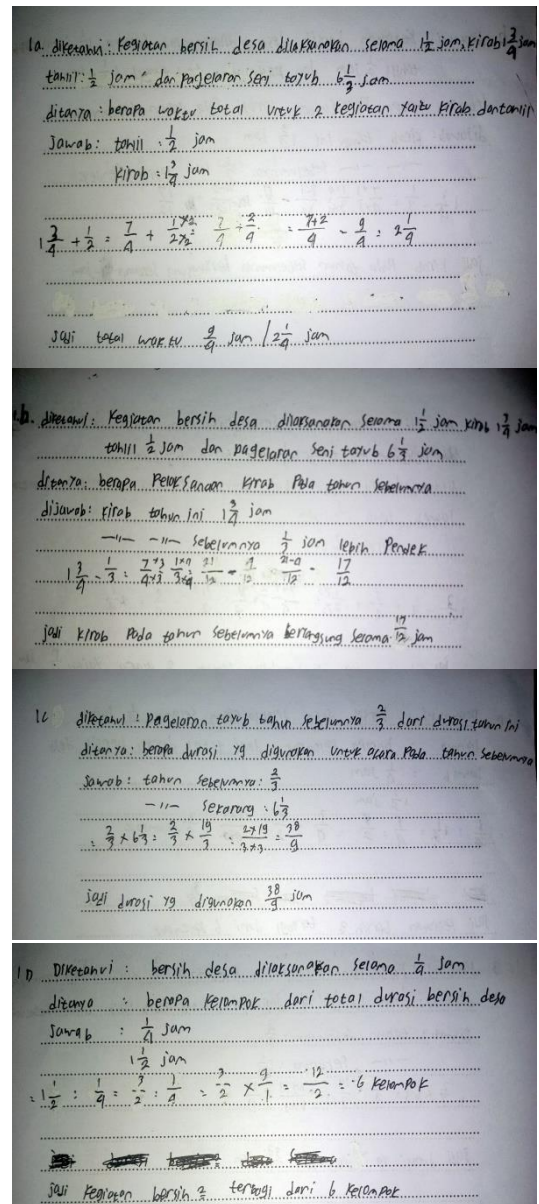 1a. diketahui : Kegiatan bersih desa dilaksanakan selama 1 1/2 jam, kirab 1 3/4 jam
tahlil : 1/2 jam dan pagelaran seni tayub 6 1/3 jam
ditanya : berapa waktu total untuk 2 kegiatan yaitu kirab dan tahlil
Jawab : tahlil : 1/2 jam
kirab : 1 3/4 jam
1 3/4 + 1/2 = 7/4 + 1×2/2×2 = 7/4 + 2/4 = 7+2/4 = 9/4 = 2 1/4
Jadi total waktu 9/4 jam / 2 1/4 jam
1.b. diketahui : Kegiatan bersih desa dilaksanakan selama 1 1/2 jam kirab 1 3/4 jam
tahlil 1/2 jam dan pagelaran seni tayub 6 1/3 jam
ditanya : berapa Pelaksanaan kirab Pada tahun sebelumnya
dijawab : kirab tahun ini 1 3/4 jam
—"— —"— sebelumnya 1/3 jam lebih Pendek
1 3/4 - 1/3 = 7×3/4×3 1×4/3×4 = 21/12 - 4/12 = 21-4/12 = 17/12
jadi kirab Pada tahun sebelumnya berlangsung selama 17/12 jam
1c diketahui : Pagelaran tayub tahun sebelumnya 2/3 dari durasi tahun ini
ditanya : berapa durasi yg digunakan untuk acara Pada tahun sebelumnya
Jawab : tahun sebelumnya : 2/3
—"— sekarang : 6 1/3
= 2/3 × 6 1/3 = 2/3 × 19/3 = 2×19/3×3 = 38/9
jadi durasi yg digunakan 38/9 jam
1D Diketahui : bersih desa dilaksanakan selama 1/4 jam
ditanya : berapa kelompok dari total durasi bersih desa
Jawab : 1/4 jam
1 1/2 jam
= 1 1/2 : 1/4 = 3/2 : 1/4 = 3/2 × 4/1 = 12/2 = 6 kelompok
jadi kegiatan bersih 2 terbagi dari 6 kelompok